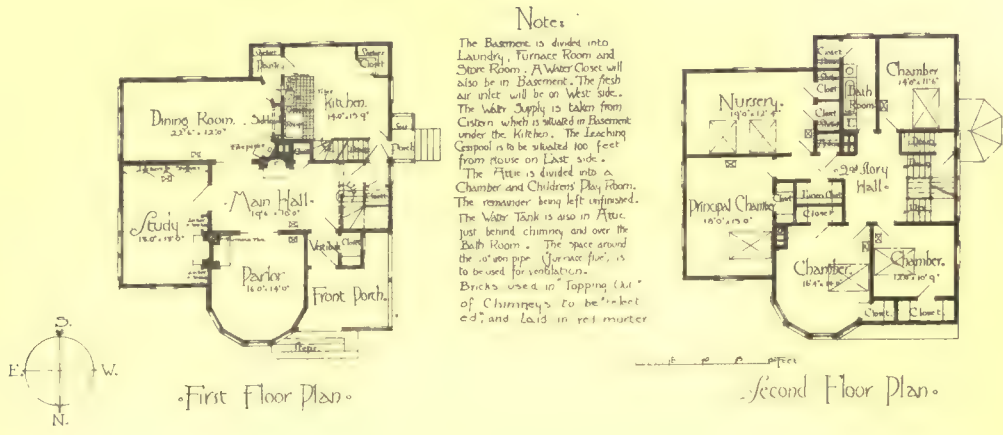 Pantry.
Closet
Kitchen.
14'0" x 15'9"
Dining Room.
22'6" x 12'0"
Main Hall
19'6" x 16'0"
Study
Parlor
16'0" x 14'0"
Vestibule
Closet
Front Porch.
Porch
Steps.
S.
E.
W.
N.
First Floor Plan
Note:
The Basement is divided into
Laundry, Furnace Room and
Store Room. A Water Closet will
also be in Basement. The fresh
air inlet will be on West side.
The Water Supply is taken from
Cistern which is situated in Basement
under the Kitchen. The Leaching
Cesspool is to be situated 100 feet
from House on East side.
The Attic is divided into a
Chamber and Childrens' Play Room.
The remainder being left unfinished.
The Water Tank is also in Attic
just behind chimney and over the
Bath Room. The space around
the iron pipe "furnace flue", is
to be used for ventilation.
Bricks used in "Topping Out"
of Chimneys to be "select
ed", and Laid in red morter
feet
Closet
Closet
Closet
Bath
Room
Chamber
14'0" x 11'6"
Nursery.
19'0" x 12'4"
2nd Story
Hall
Principal Chamber
Closet
Linen Closet
Closet
Chamber.
Chamber.
12'0" x 10'9"
Closet
Closet.
Second Floor Plan